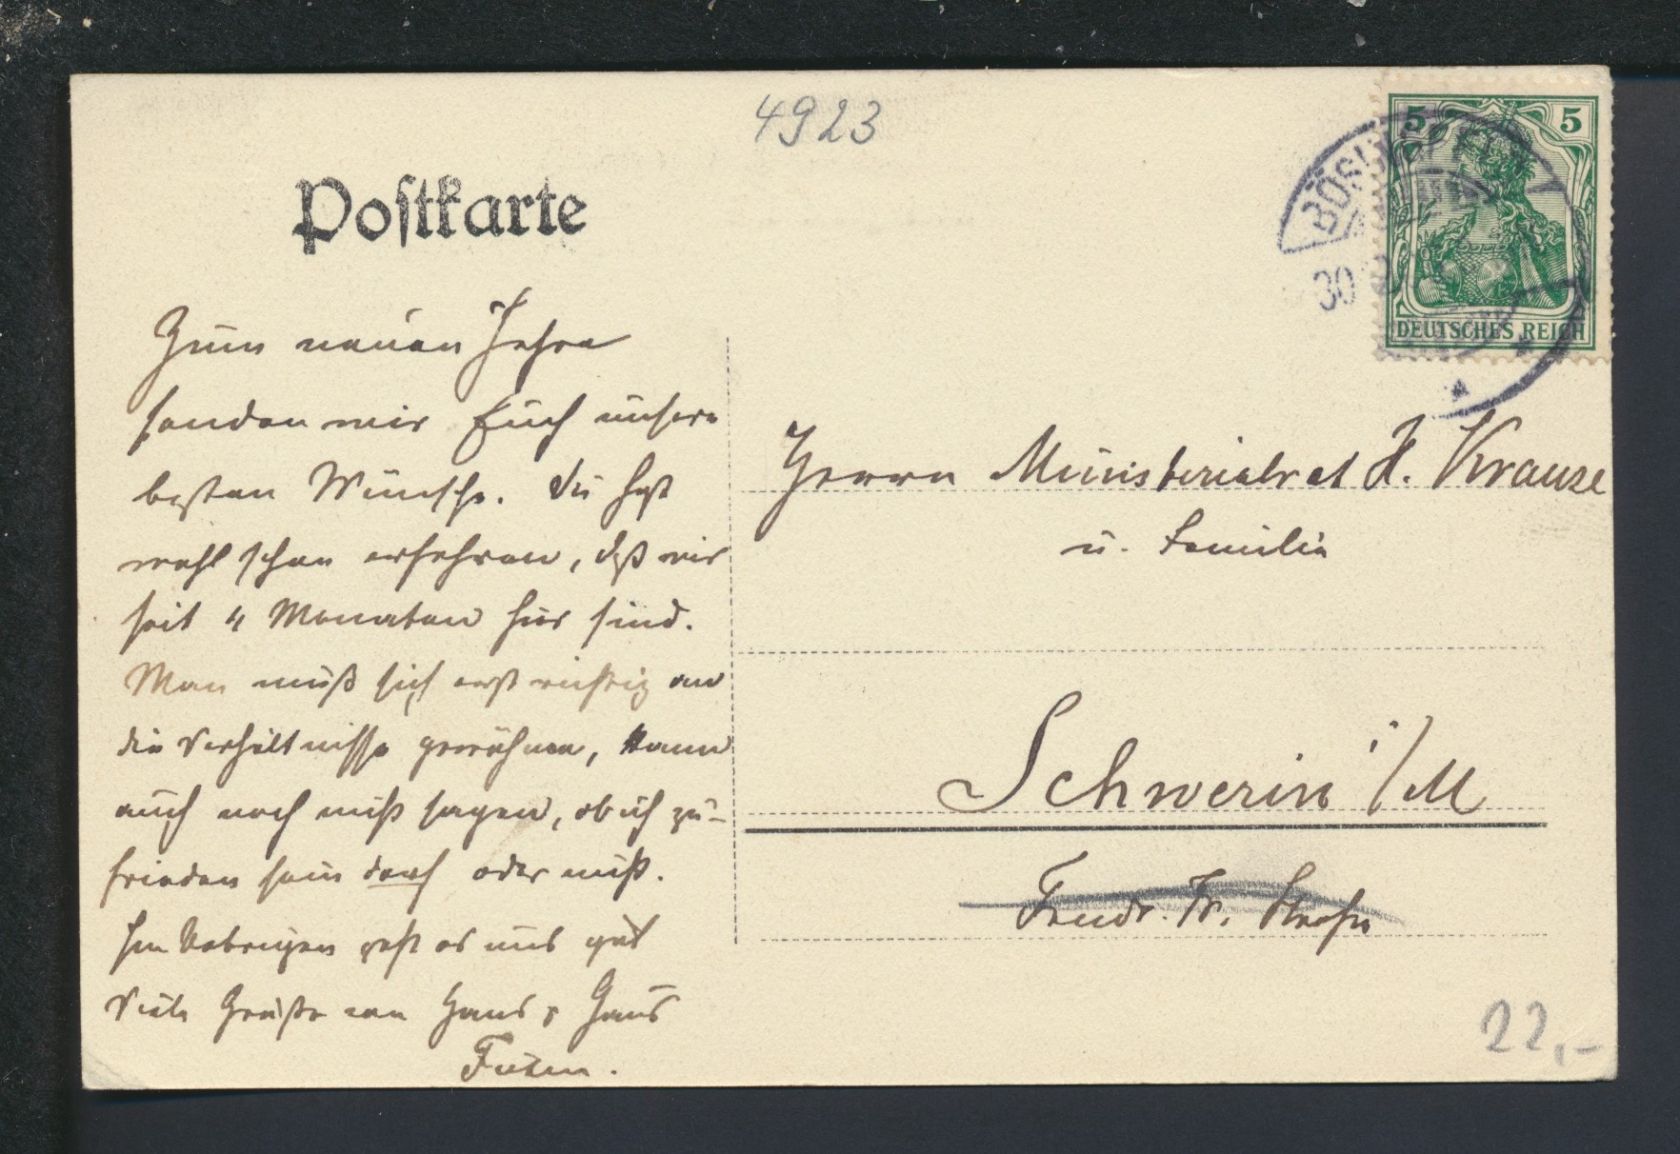 4923
Postkarte
5 5
DEUTSCHES REICH
30
Zum neuen Jahre
senden wir Euch unsere
besten Wünsche. Du hast
wohl schon erfahren, daß wir
seit 4 Monaten hier sind.
Man muß sich erst richtig an
die Verhältnisse gewöhnen, kann
auch noch nicht sagen, ob ich zu-
frieden sein darf oder nicht.
Im Uebrigen geht es uns gut
Viele Grüße von Haus z Haus
Herrn Ministerialrat H. Krause
u. Familie
Schwerin i/M
Friedr. Fr. Straße
22,-